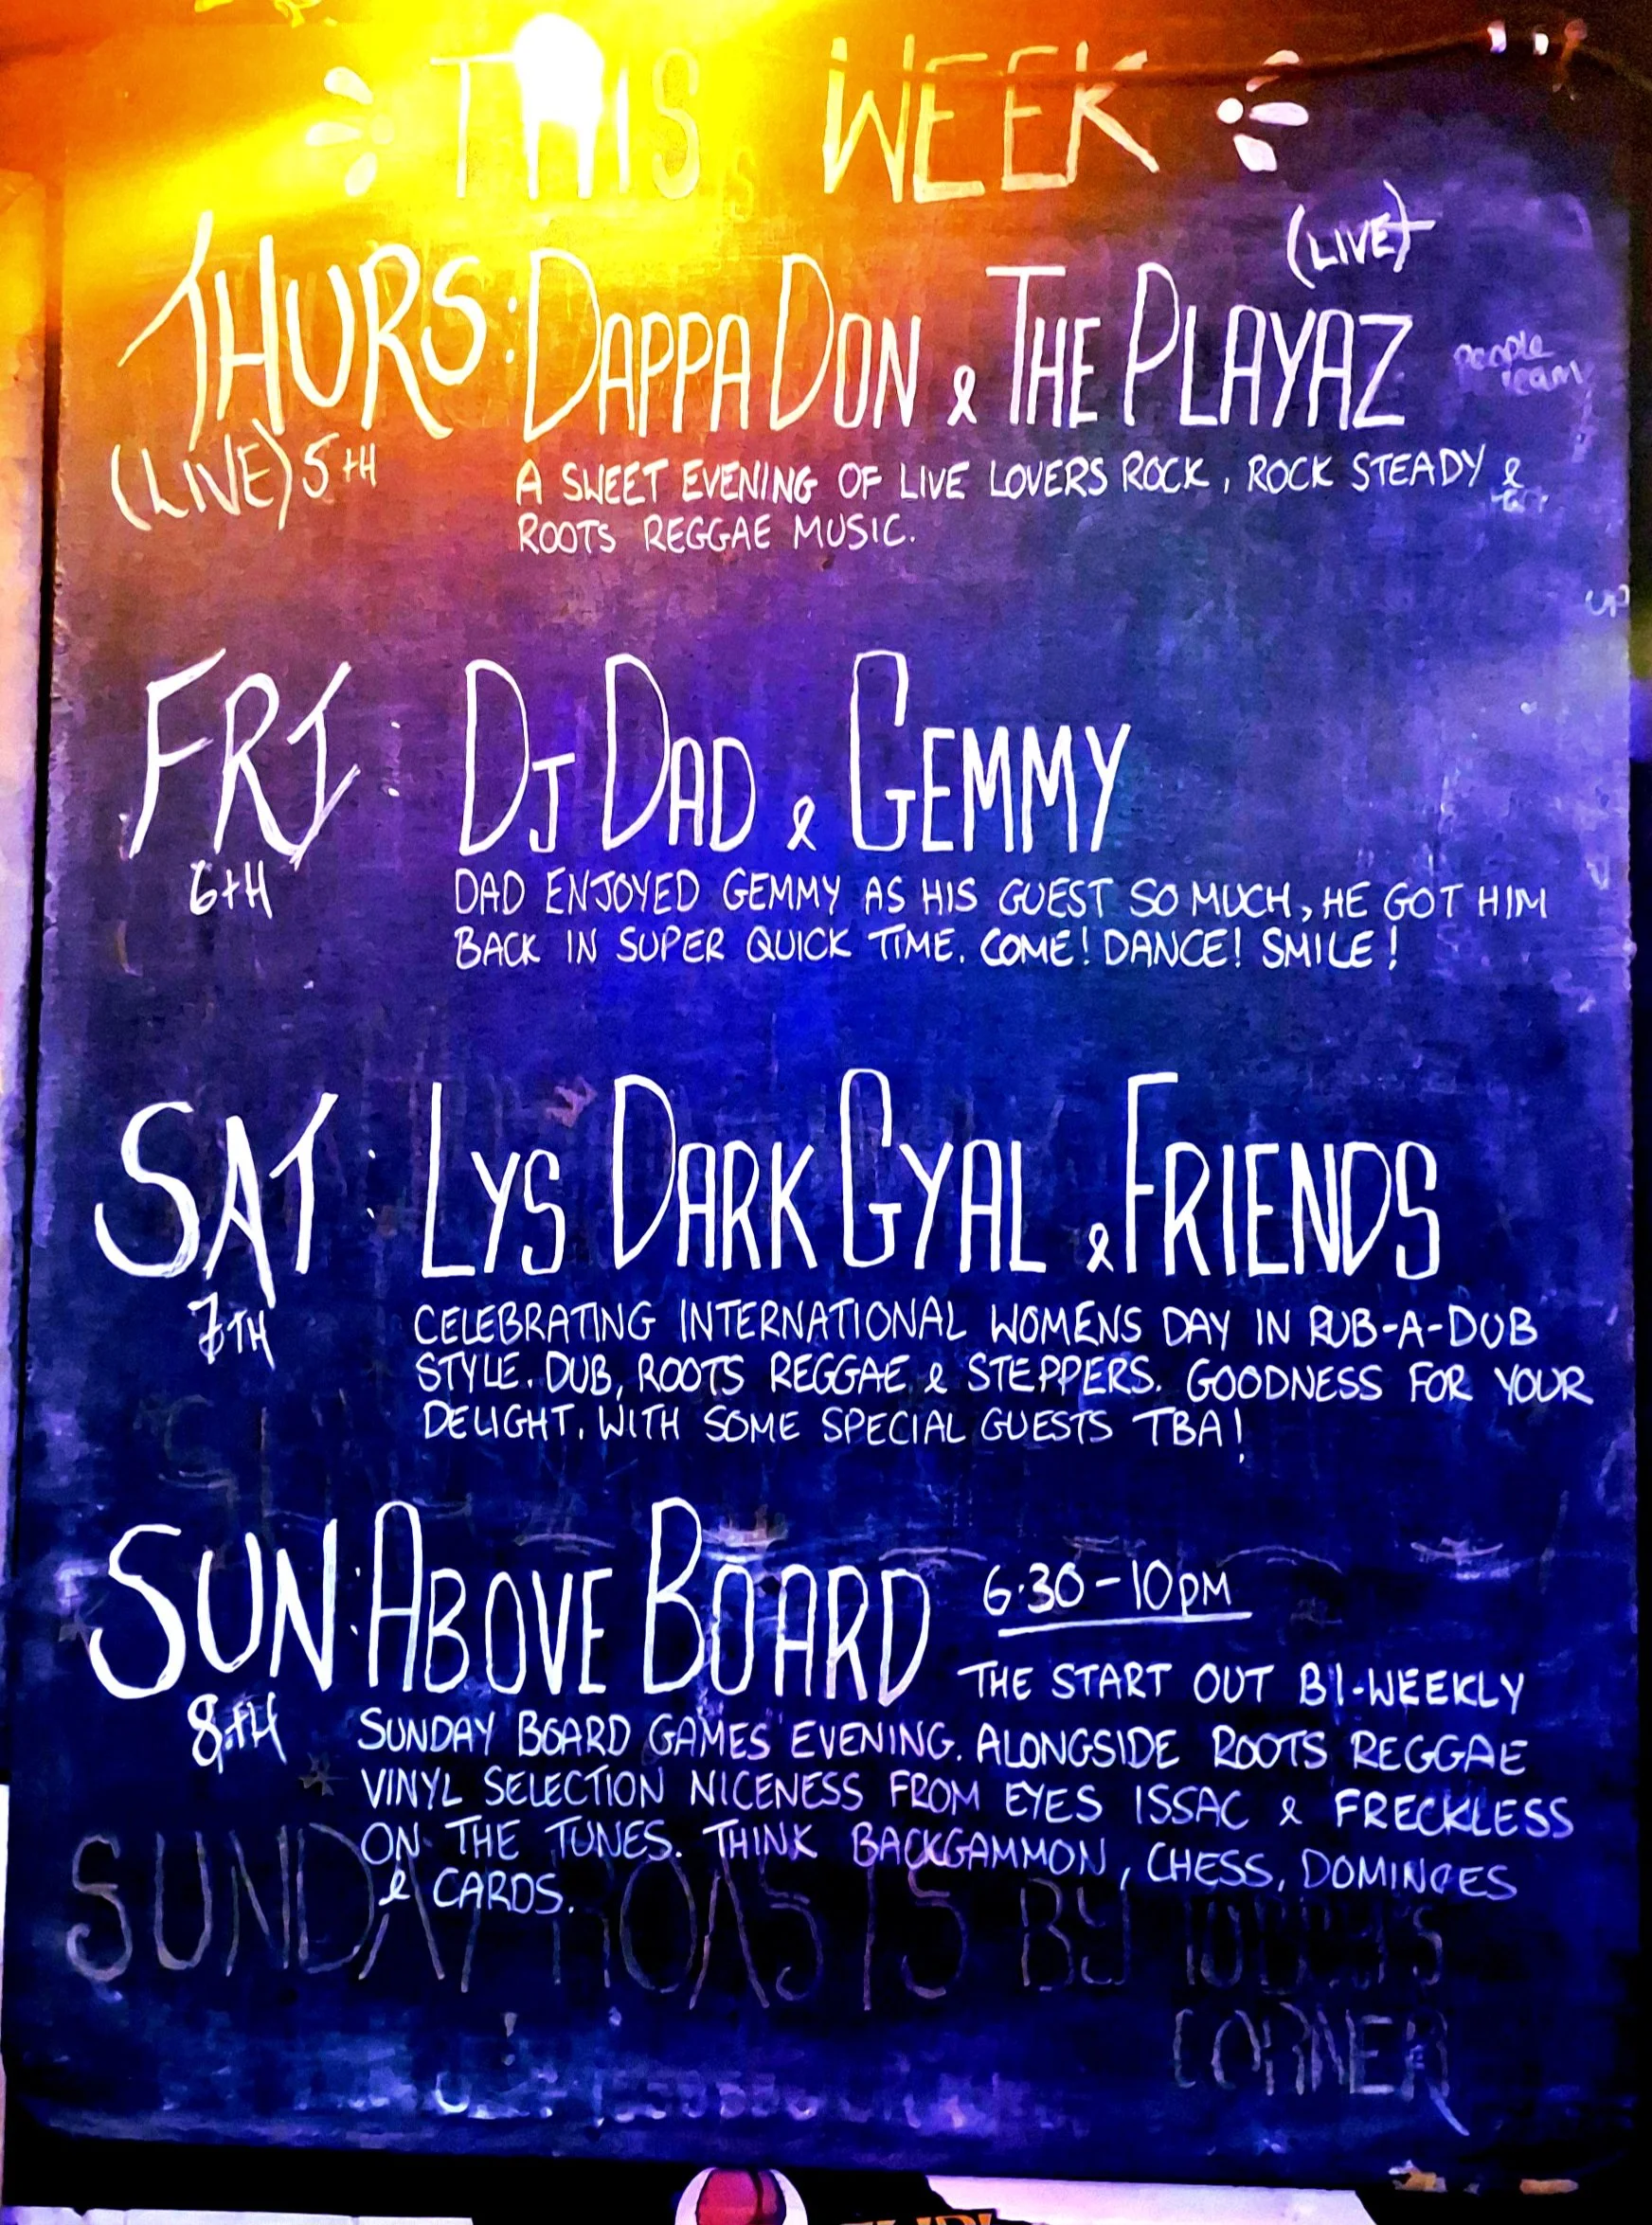 THIS WEEK
(LIVE)
THURS: DAPPA DON & THE PLAYAZ
(LIVE) 5TH
A SWEET EVENING OF LIVE LOVERS ROCK, ROCK STEADY &
ROOTS REGGAE MUSIC.
people
team
UP
FRI: DJ DAD & GEMMY
6TH
DAD ENJOYED GEMMY AS HIS GUEST SO MUCH, HE GOT HIM
BACK IN SUPER QUICK TIME. COME! DANCE! SMILE!
SAT: LYS DARK GYAL & FRIENDS
7TH
CELEBRATING INTERNATIONAL WOMENS DAY IN RUB-A-DUB
STYLE. DUB, ROOTS REGGAE & STEPPERS. GOODNESS FOR YOUR
DELIGHT. WITH SOME SPECIAL GUESTS TBA!
SUN: ABOVE BOARD 6.30-10PM
8TH
THE START OUT BI-WEEKLY
SUNDAY BOARD GAMES EVENING. ALONGSIDE ROOTS REGGAE
VINYL SELECTION NICENESS FROM EYES ISSAC & FRECKLESS
ON THE TUNES. THINK BACKGAMMON, CHESS, DOMINOES
& CARDS.
SUNDAY ROASTS BY
CORNER